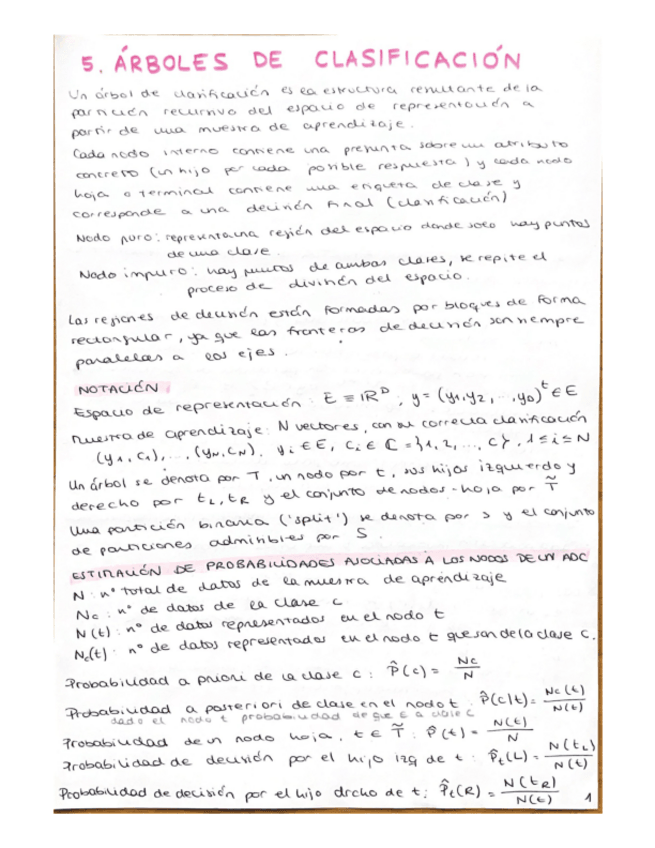 5. ÁRBOLES DE CLASIFICACIÓN
Un árbol de clasificación es la estructura resultante de la
partición recursiva del espacio de representación a
partir de una muestra de aprendizaje.
Cada nodo interno contiene una pregunta sobre un atributo
concreto (un hijo por cada posible respuesta) y cada nodo
hoja o terminal contiene una etiqueta de clase y
corresponde a una decisión final (clasificación)
Nodo puro: representa una región del espacio donde solo hay puntos
de una clase.
Nodo impuro: hay puntos de ambas clases, se repite el
proceso de división del espacio.
Las regiones de decisión están formadas por bloques de forma
rectangular, ya que las fronteras de decisión son siempre
paralelas a los ejes.
NOTACIÓN
Espacio de representación: E ≡ ℝ^D; y = (y1, y2, ..., yD)^t ∈ E
Muestra de aprendizaje: N vectores, con su correcta clasificación
(y1, c1), ..., (yN, cN), yi ∈ E, ci ∈ ℂ = {1, 2, ..., C}, 1 ≤ i ≤ N
Un árbol se denota por T, un nodo por t, sus hijos izquierdo y
derecho por tL, tR y el conjunto de nodos-hoja por T̃
Una partición binaria ('split') se denota por s y el conjunto
de particiones admisibles por S.
ESTIMACIÓN DE PROBABILIDADES ASOCIADAS A LOS NODOS DE UN ADC
N: nº total de datos de la muestra de aprendizaje
Nc: nº de datos de la clase c
N(t): nº de datos representados en el nodo t
Nc(t): nº de datos representados en el nodo t que son de la clase c.
Probabilidad a priori de la clase c: P̂(c) = Nc/N
Probabilidad a posteriori de clase en el nodo t: P̂(c|t) = Nc(t)/N(t)
dado el nodo t probabilidad de que sea clase c
Probabilidad de un nodo hoja, t ∈ T̃: P̂(t) = N(t)/N
Probabilidad de decisión por el hijo izq de t: P̂t(L) = N(tL)/N(t)
Probabilidad de decisión por el hijo drcho de t: P̂t(R) = N(tR)/N(t)
1